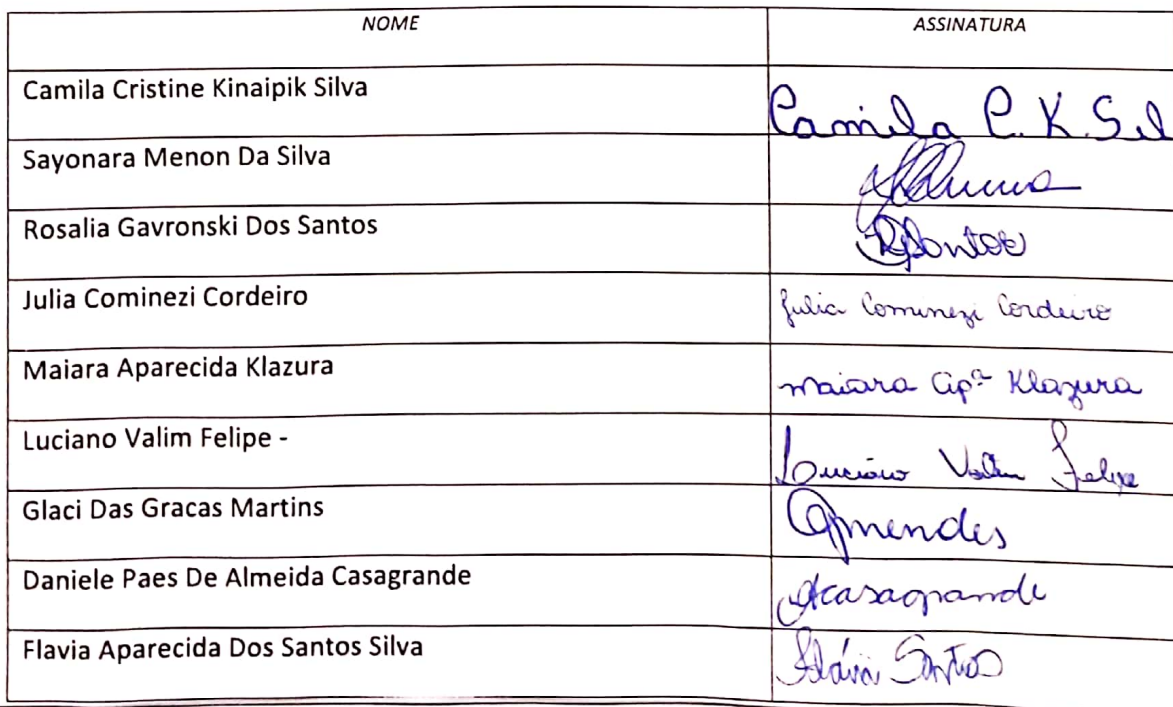 NOME ASSINATURA
Camila Cristine Kinaipik Silva Camila C. K. Sil
Sayonara Menon Da Silva
Rosalia Gavronski Dos Santos RSantos
Julia Cominezi Cordeiro Julia Cominezi Cordeiro
Maiara Aparecida Klazura Maiara Apª Klazura
Luciano Valim Felipe - Luciano Valim Felipe
Glaci Das Gracas Martins Gmendes
Daniele Paes De Almeida Casagrande Dcasagrande
Flavia Aparecida Dos Santos Silva Flávia Santos